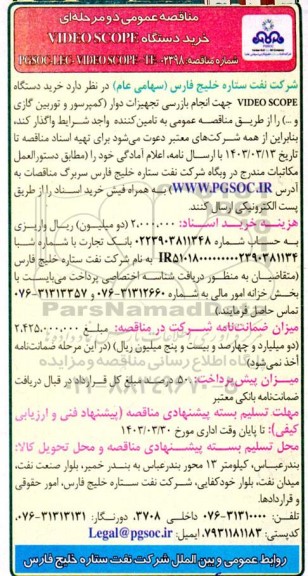 مناقصه عمومی دو مرحله‌ای
خرید دستگاه VIDEO SCOPE
شماره مناقصه: PGSOC-LEC- VIDEOSCOPE - TE- ۰۲۳۹۸
شرکت نفت ستاره خلیج فارس (سهامی عام) در نظر دارد خرید دستگاه
VIDEO SCOPE جهت انجام بازرسی تجهیزات دوار (کمپرسور و توربین گازی
و ...) را از طریق مناقصه عمومی به تامین کننده واجد شرایط واگذار کند،
بنابراین از همه شرکت‌های معتبر دعوت می‌شود برای تهیه اسناد مناقصه تا
تاریخ ۱۴۰۳/۰۳/۱۳ با ارسال نامه، اعلام آمادگی خود را (مطابق دستورالعمل
مکاتبات مندرج در وبگاه شرکت نفت ستاره خلیج فارس سربرگ مناقصات به
آدرس WWW.PGSOC.IR) به همراه فیش خرید اسناد را از طریق
پست الکترونیکی ارسال کنند.
هزینه خرید اسناد: ۲.۰۰۰.۰۰۰ (دو میلیون) ریال واریزی
به حساب شماره ۰۲۲۳۹۰۳۸۱۱۳۴۸ بانک تجارت با شماره شبا
به نام شرکت نفت ستاره خلیج فارس
(متقاضیان به منظور دریافت شناسه اختصاصی پرداخت می‌بایست با
بخش خزانه امور مالی به شماره ۳۱۳۱۲۶۶۰-۰۷۶ و ۳۱۳۱۳۳۵۷-۰۷۶
تماس حاصل فرمایند.)
میزان ضمانت‌نامه شرکت در مناقصه: مبلغ ۲.۴۲۵.۰۰۰.۰۰۰
(دو میلیارد و چهارصد و بیست و پنج میلیون ریال) (در این مرحله ضمانت‌نامه
اخذ نمی‌شود)
میزان پیش پرداخت: ۵۰ درصد مبلغ کل قرارداد در قبال دریافت
ضمانت‌نامه بانکی معتبر
مهلت تسلیم بسته پیشنهادی مناقصه (پیشنهاد فنی و ارزیابی
کیفی): تا پایان وقت اداری مورخ ۱۴۰۳/۰۳/۳۰
محل تسلیم بسته پیشنهادی مناقصه و محل تحویل کالا:
بندرعباس، کیلومتر ۱۳ محور بندرعباس به بندر خمیر، بلوار صنعت نفت،
میدان نفت، بلوار خودکفایی، شرکت نفت ستاره خلیج فارس، امور حقوقی
و قراردادها.
تلفن: ۳۱۳۱۰۰۰۰-۰۷۶ داخلی ۳۷۰۸، دورنگار: ۳۱۳۱۳۱۳۱-۰۷۶،
کدپستی: ۷۹۳۱۱۸۱۱۸۳، ایمیل: Legal@pgsoc.ir
روابط عمومی و بین الملل شرکت نفت ستاره خلیج فارس